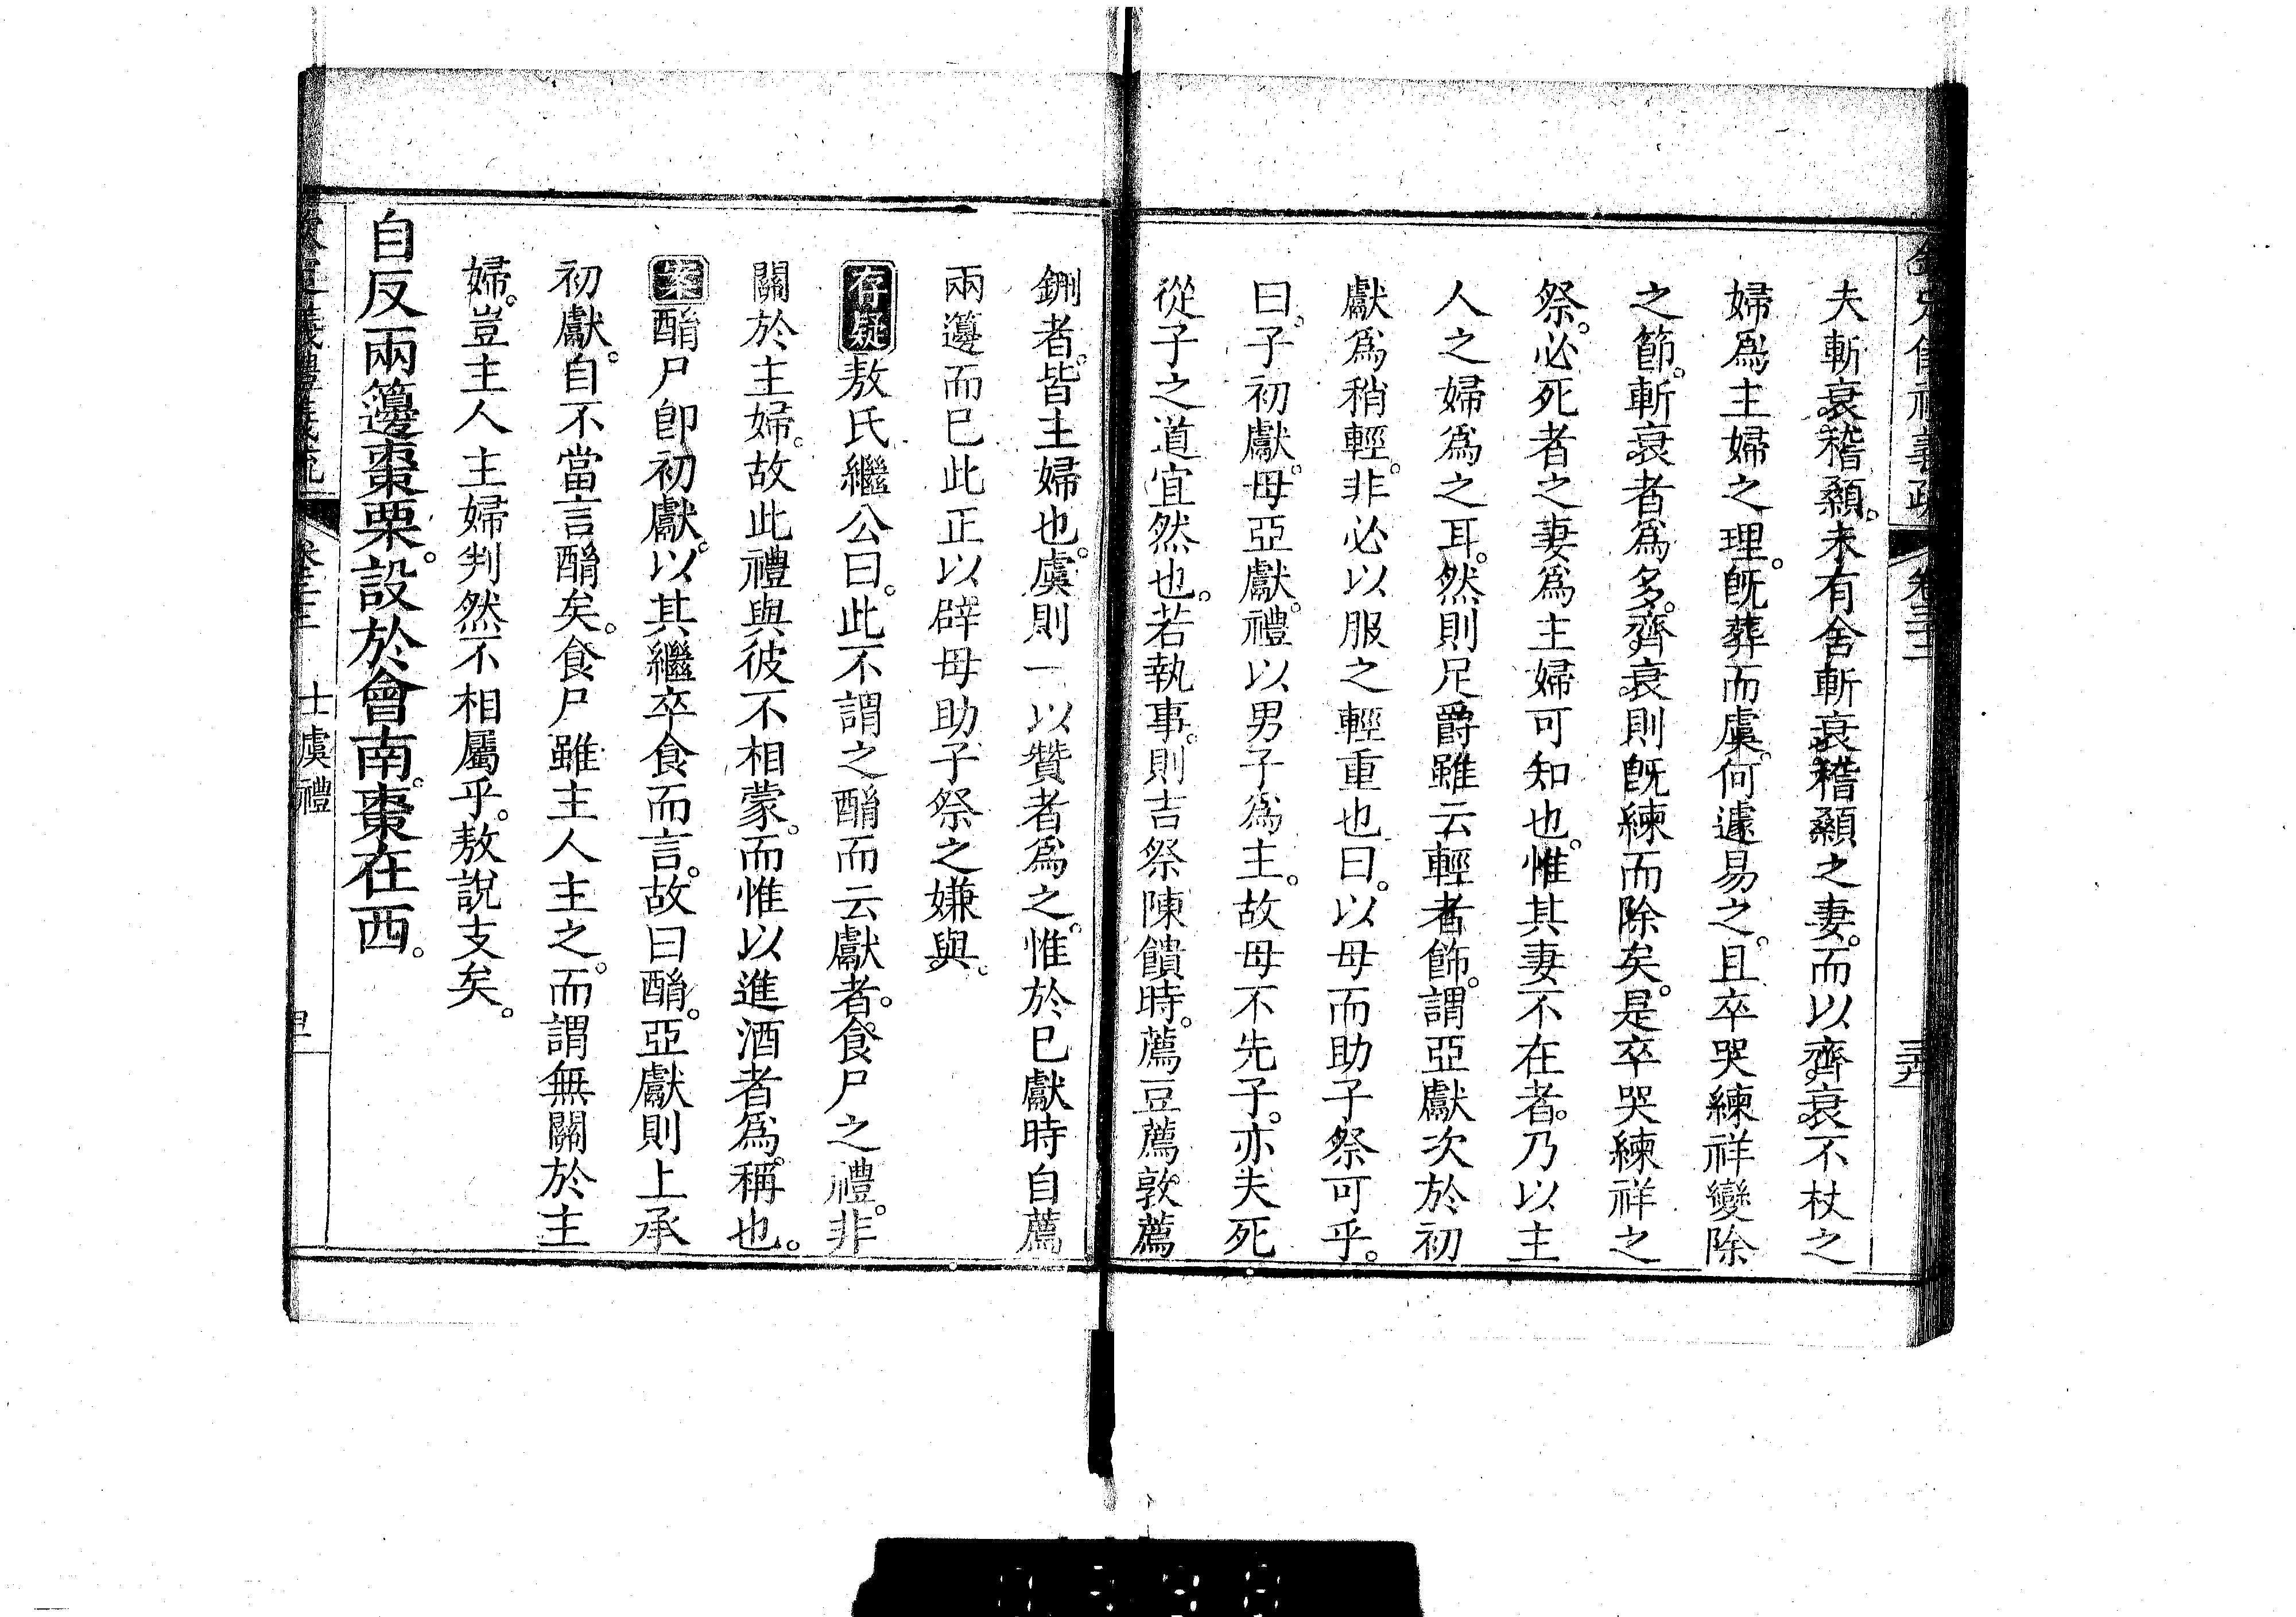 夫斬衰稽顙。未有舍斬衰稽顙之妻。而以齊衰不杖之
婦爲主婦之理。旣葬而虞。何遽易之。且卒哭練祥變除
之節。斬衰者爲多。齊衰則旣練而除矣。是卒哭練祥之
祭。必死者之妻爲主婦可知也。惟其妻不在者。乃以主
人之婦爲之耳。然則足爵雖云輕者飾。謂亞獻次於初
獻爲稍輕。非必以服之輕重也曰。以母而助子祭可乎。
曰。子初獻。母亞獻。禮以男子爲主。故母不先子。亦夫死
從子之道宜然也。若執事。則吉祭陳饋時。薦豆薦敦薦
鉶者。皆主婦也。虞則一以贊者爲之。惟於已獻時自薦
兩籩而已此正以辟母助子祭之嫌與。
存疑敖氏繼公曰。此不謂之酳而云獻者。食尸之禮。非
關於主婦。故此禮與彼不相蒙。而惟以進酒者爲稱也。
案酳尸卽初獻。以其繼卒食而言。故曰酳。亞獻則上承
初獻。自不當言酳矣。食尸雖主人主之。而謂無關於主
婦。豈主人主婦判然不相屬乎。敖說支矣。
自反兩籩棗栗。設於會南。棗在西。
士虞禮